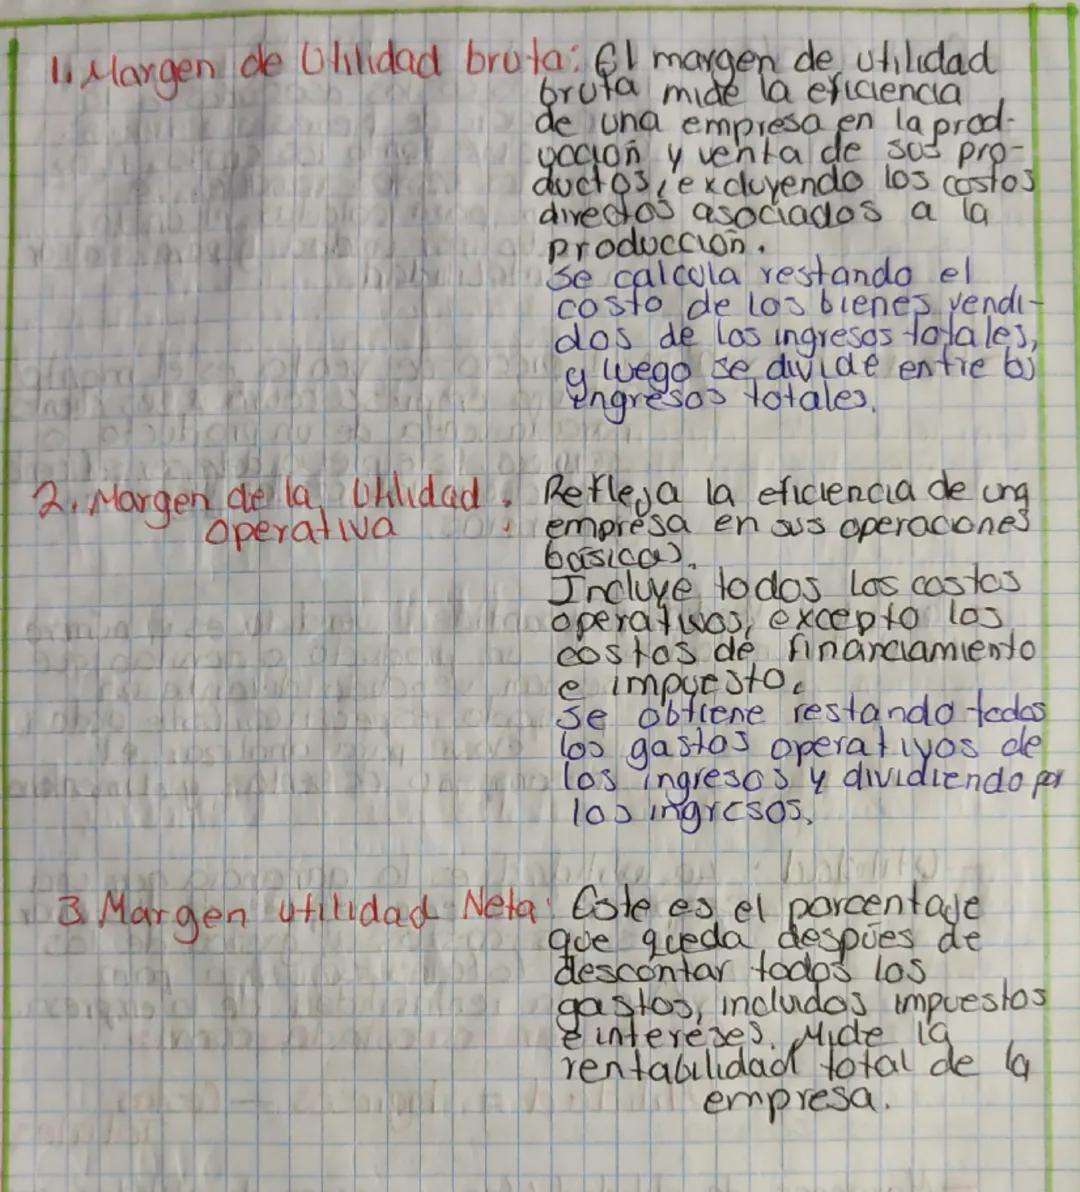 1. Margen de Utilidad bruta: El margen de utilidad
bruta mide la eficiencia
de una empresa en la prod-
ucción y venta de sus pro-
ductos, excluyendo los costos
directos asociados a la
producción.
Se calcula restando el
costo de los bienes vendi-
dos de los ingresos totales,
y luego se divide entre los
ingresos totales.
2. Margen de la Utilidad : Refleja la eficiencia de una
operativa empresa en sus operaciones
básicas.
Incluye todos los costos
operativos, excepto los
costos de financiamiento
e impuesto.
Se obtiene restando todos
los gastos operativos de
los ingresos y dividiendo por
los ingresos.
3. Margen utilidad Neta: Este es el porcentaje
que queda después de
descontar todos los
gastos, incluidos impuestos
e intereses. Mide la
rentabilidad total de la
empresa.